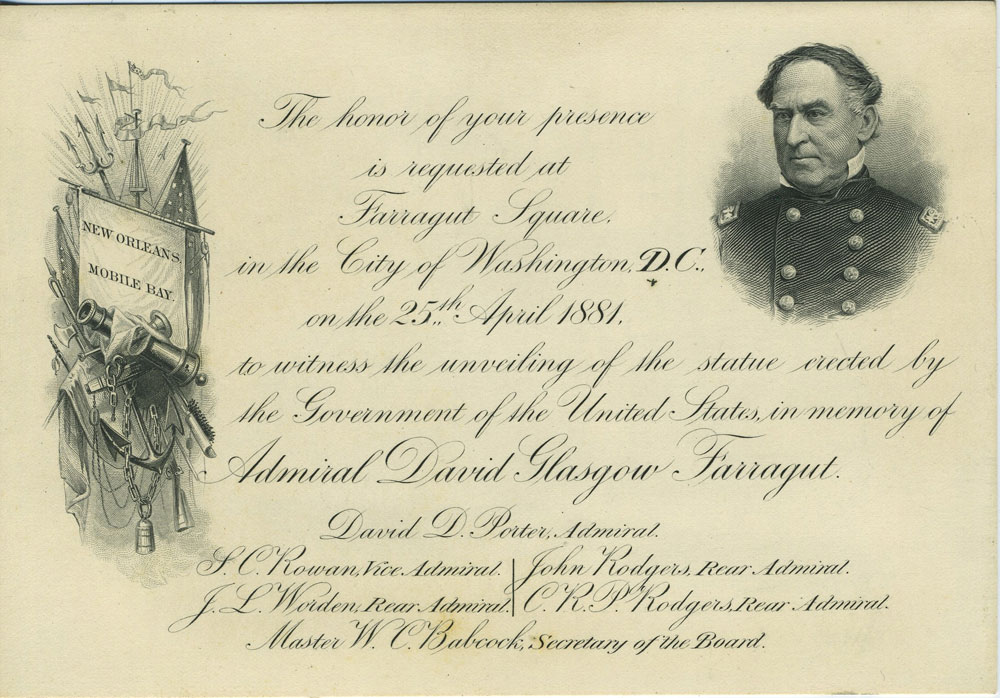 NEW ORLEANS.
MOBILE BAY.
The honor of your presence
is requested at
Farragut Square.
in the City of Washington, D.C.,
on the 25th April 1881,
to witness the unveiling of the statue erected by
the Government of the United States, in memory of
Admiral David Glasgow Farragut.
David D. Porter, Admiral.
S. C. Rowan, Vice Admiral. | John Rodgers, Rear Admiral.
J. L. Worden, Rear Admiral. | C. R. P. Rodgers, Rear Admiral.
Master W. C. Babcock, Secretary of the Board.